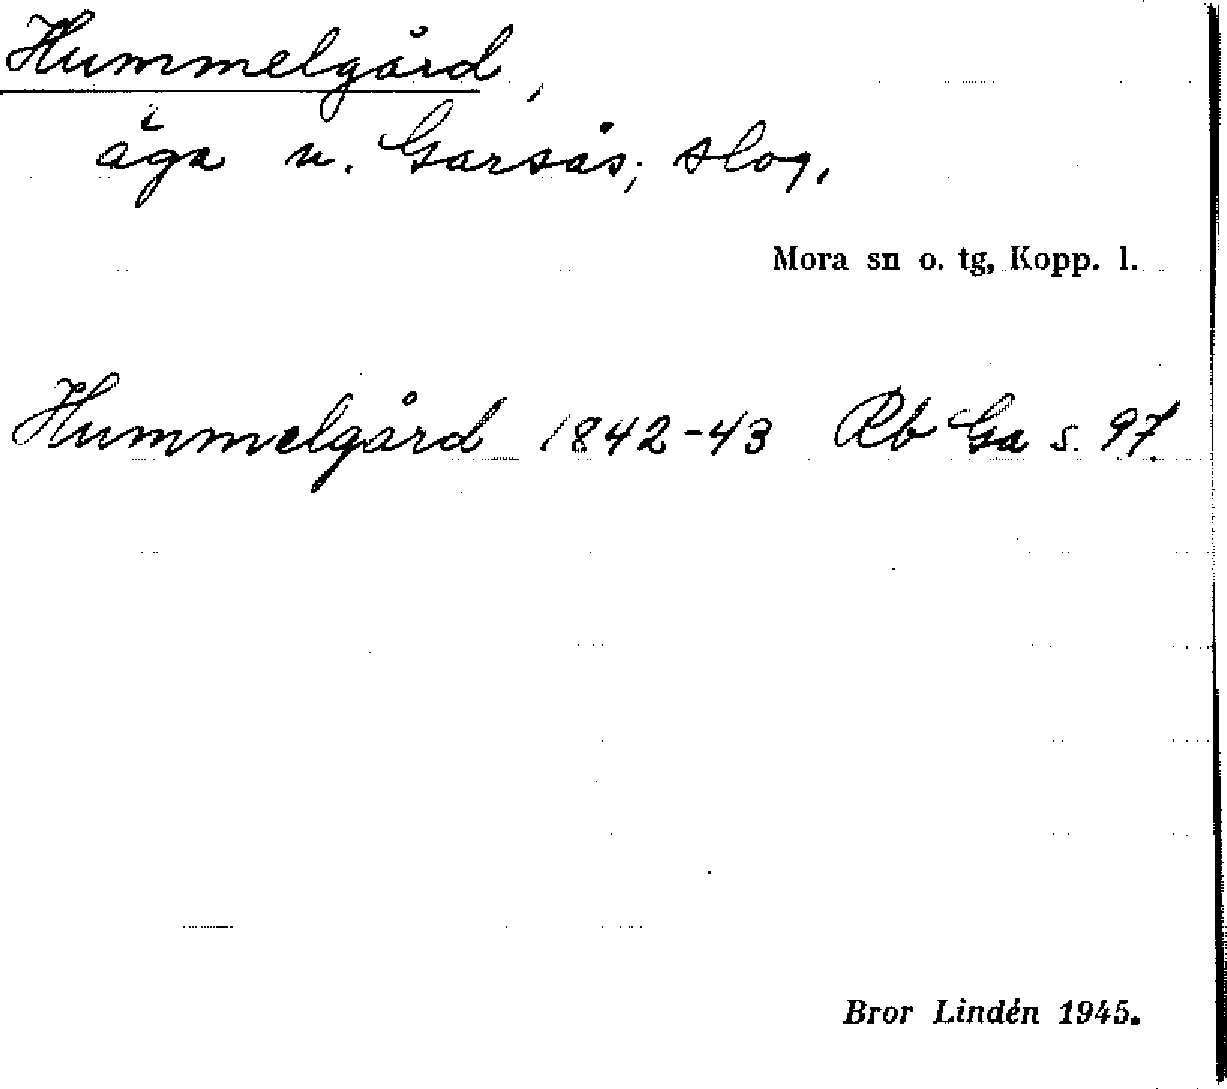 Hummelgård,
äga u. Garsås; slog.
Mora sn o. tg, Kopp. l.
Hummelgård 1842-43 Rb Ga s. 97.
Bror Lindén 1945.